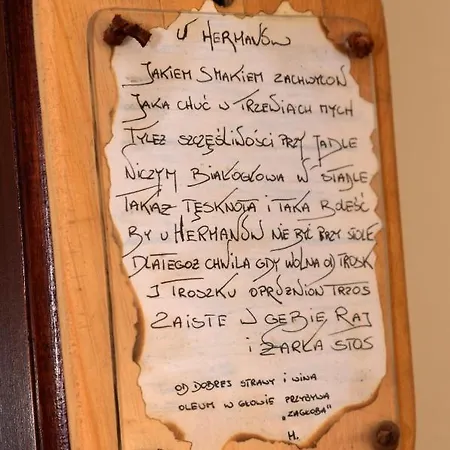 U HERMANÓW
JAKIEM SMAKIEM ZACHWYCON
JAKA CHUĆ W TRZEWIACH MYCH
TYLEŻ SZCZĘŚLIWOŚCI PRZY JADLE
NICZYM BIAŁOGŁOWA W STADLE
TAKAŻ TĘSKNOTA I TAKA BOLEŚĆ
BY U HERMANÓW NIE BYĆ PRZY STOLE
DLATEGOŻ CHWILA GDY WOLNA OD TROSK
I TROSZKU OPRÓŻNION TRZOS
ZAISTE W GĘBIE RAJ
I ŻARŁA STOS
OD DOBREJ STRAWY I WINA
OLEUM W GŁOWIE PRZYBYWA
"ZAGŁOBA"
H.